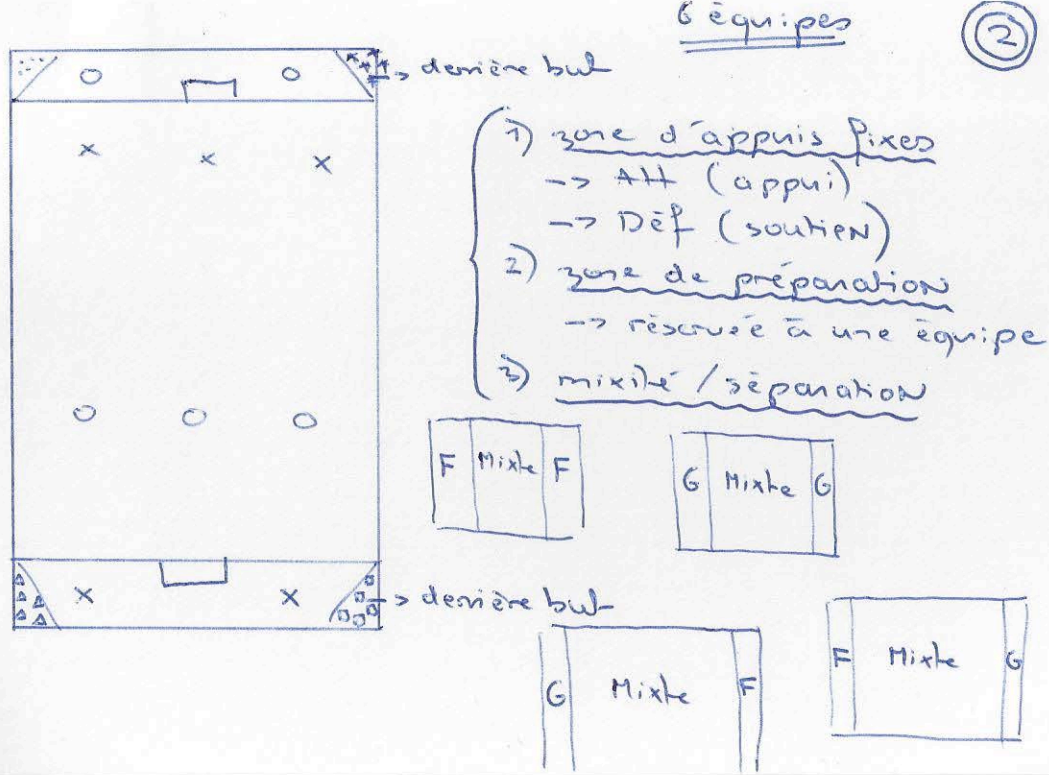 6 équipes
2
-> derrière but
1) zone d'appuis fixes
-> Att (appui)
-> Déf (soutien)
2) zone de préparation
-> réservée à une équipe
3) mixité / séparation
F Mixte F
G Mixte G
-> derrière but
G Mixte F
F Mixte G